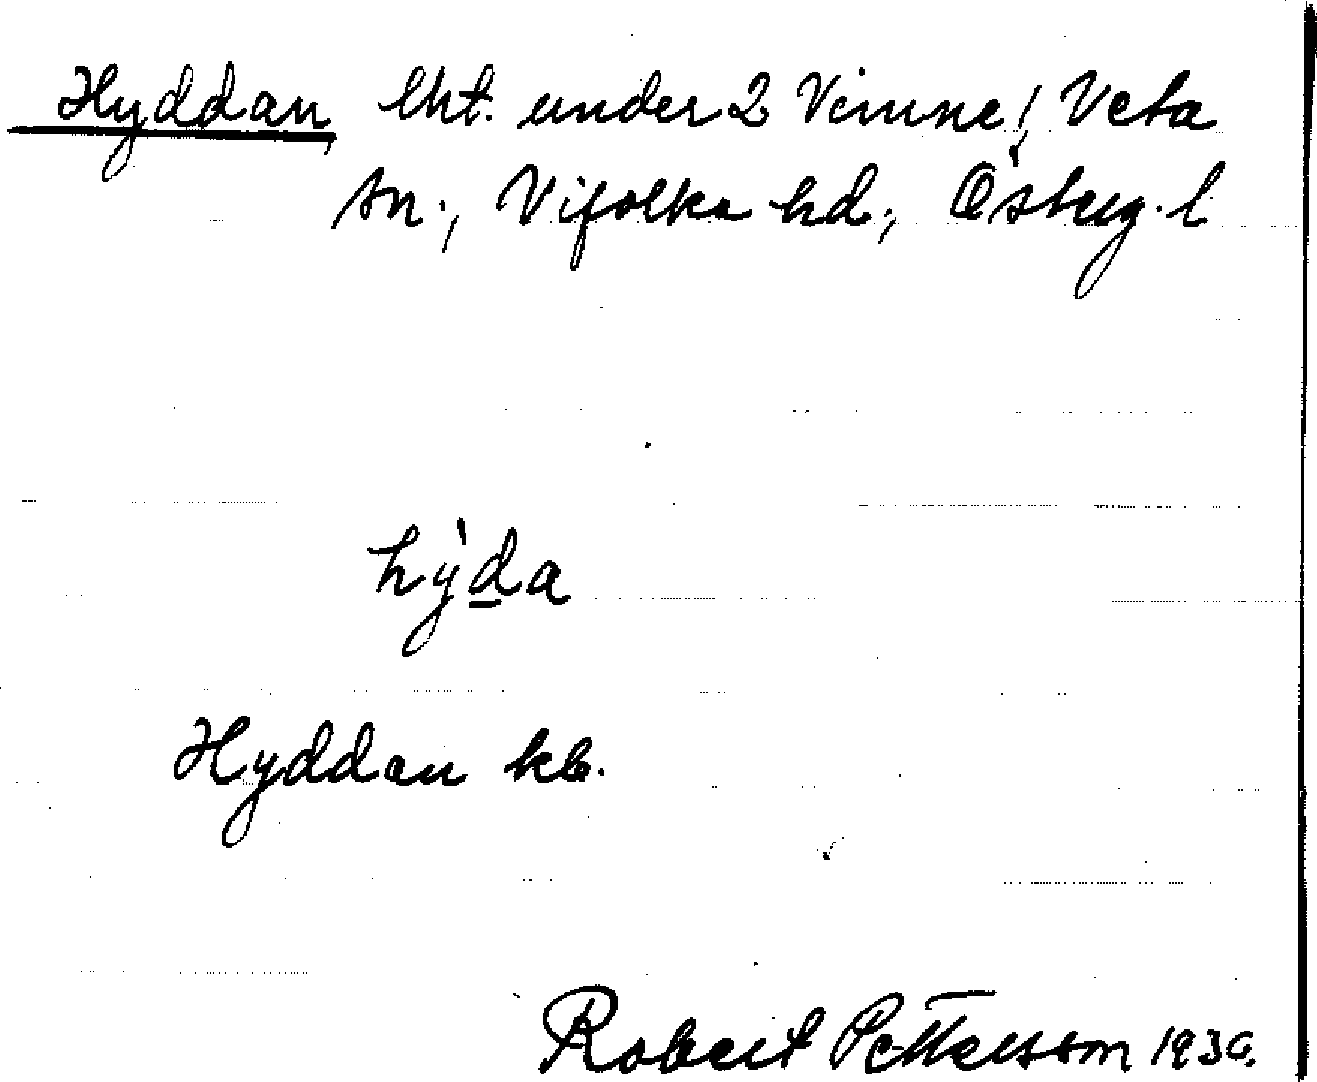 Hyddan, lht. under 2 Vinne!, Veta
sn., Vifolka hd., Östrg. l
hy̍d̲a
Hyddan kb.
Robert Pettersson 1930.